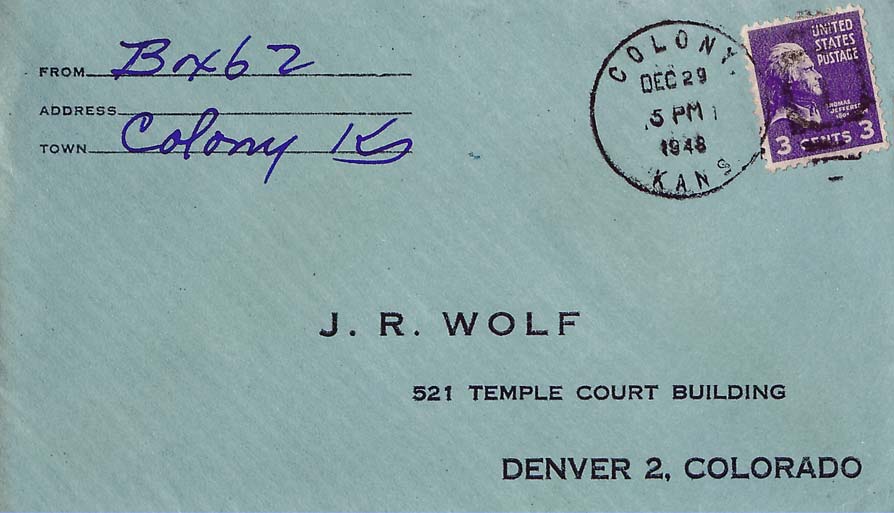 FROM Box 62
ADDRESS
TOWN Colony Ks
COLONY
DEC 29
5 PM
1948
KANS
UNITED
STATES
POSTAGE
THOMAS
JEFFERSON
3 CENTS 3
J. R. WOLF
521 TEMPLE COURT BUILDING
DENVER 2, COLORADO